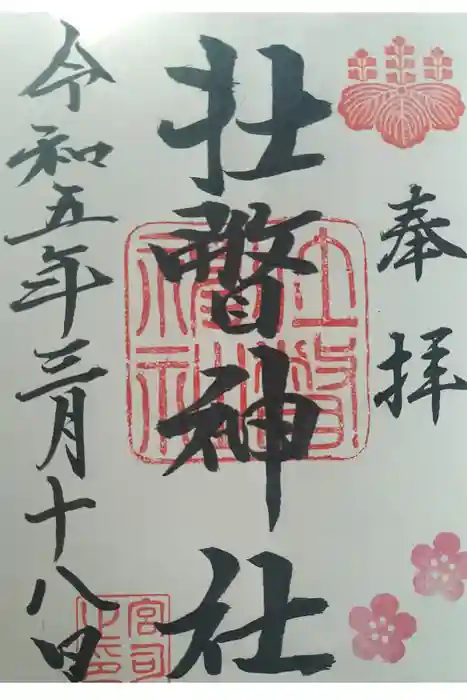 奉拝
壮瞥神社
令和五年三月十八日
宮司
之印